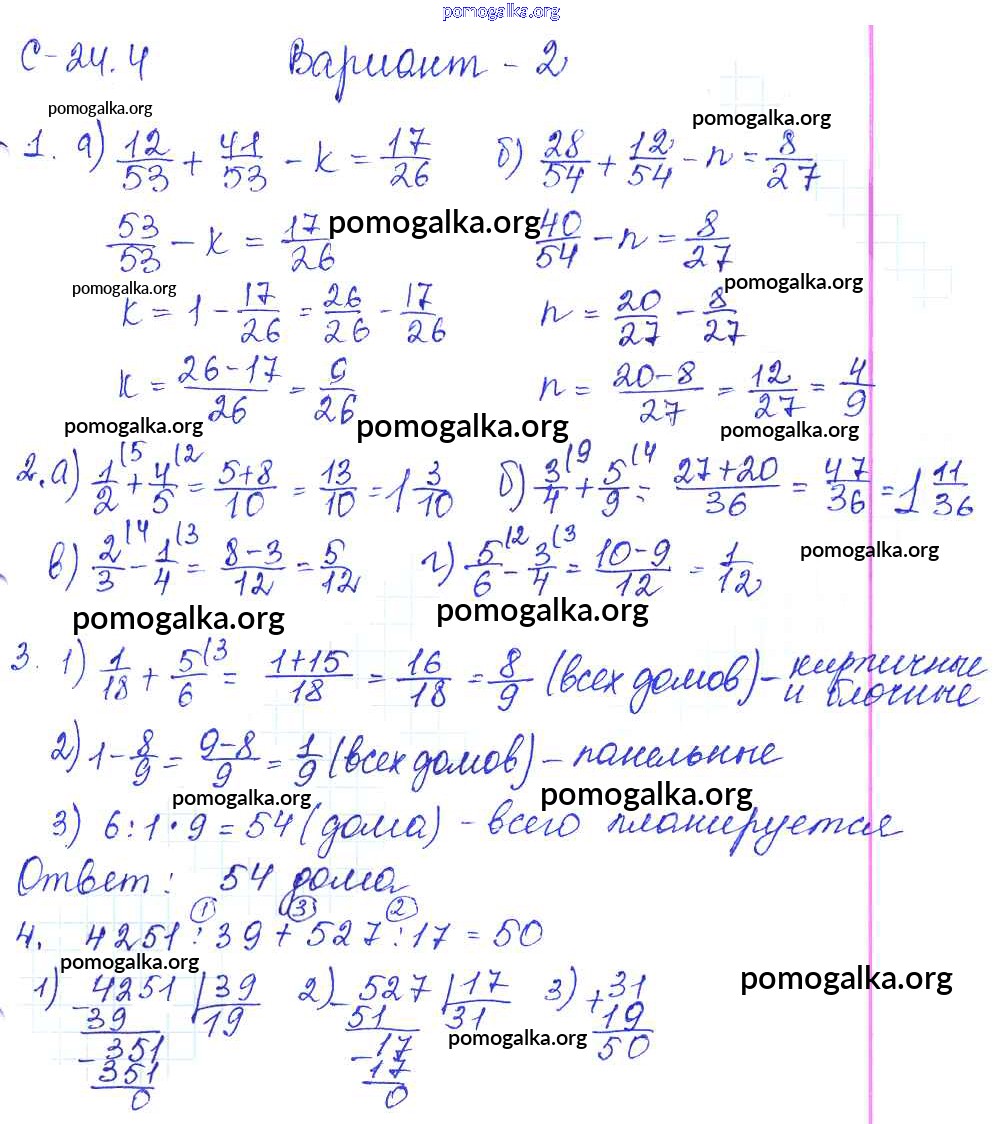 pomogalka.org
С-24.4 Вариант - 2
pomogalka.org pomogalka.org
1. а) 12/53 + 41/53 - k = 17/26 б) 28/54 + 12/54 - n = 8/27
53/53 - k = 17/26 pomogalka.org 40/54 - n = 8/27
pomogalka.org pomogalka.org
k = 1 - 17/26 = 26/26 - 17/26 n = 20/27 - 8/27
k = 26-17/26 = 9/26 n = 20-8/27 = 12/27 = 4/9
pomogalka.org pomogalka.org pomogalka.org
2. а) 1/2 (5 + 4/5 (2 = 5+8/10 = 13/10 = 1 3/10 б) 3/4 (9 + 5/9 (4 = 27+20/36 = 47/36 = 1 11/36
в) 2/3 (4 - 1/4 (3 = 8-3/12 = 5/12 г) 5/6 (2 - 3/4 (3 = 10-9/12 = 1/12 pomogalka.org
pomogalka.org pomogalka.org
3. 1) 1/18 + 5/6 (3 = 1+15/18 = 16/18 = 8/9 (всех домов) - кирпичные
и блочные
2) 1 - 8/9 = 9-8/9 = 1/9 (всех домов) - панельные
pomogalka.org pomogalka.org
3) 6 : 1 · 9 = 54 (дома) - всего планируется
Ответ: 54 дома
1 3 2
4. 4251 : 39 + 527 : 17 = 50
pomogalka.org pomogalka.org
1) 4251 | 39 2) 527 | 17 3) 31
- 39 19 - 51 31 + 19
- 351 - 17 pomogalka.org 50
351 17
0 0